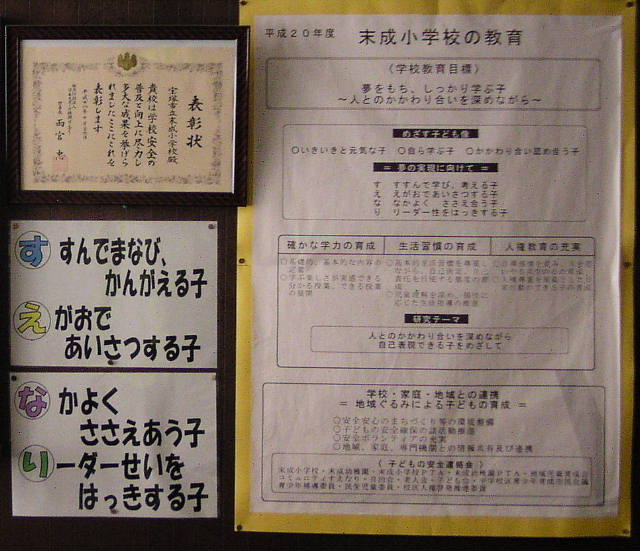 表彰状
宝塚市立末成小学校殿
貴校は学校安全の
普及と向上に尽力し
多大な成果を挙げら
れましたここにこれを
表彰します
雨宮 忠
すんでまなび、
かんがえる子
えがおで
あいさつする子
なかよく
ささえあう子
リーダーせいを
はっきする子
平成20年度
末成小学校の教育
〈学校教育目標〉
夢をもち、しっかり学ぶ子
～人とのかかわり合いを深めながら～
めざす子ども像
○いきいきと元気な子 ○自ら学ぶ子 ○かかわり合い認め合う子
= 夢の実現に向けて =
す すすんで学び、考える子
え えがおであいさつする子
な なかよく ささえ合う子
り リーダー性をはっきする子
確かな学力の育成
生活習慣の育成
人権教育の充実
研究テーマ
人とのかかわり合いを深めながら
自己表現できる子をめざして
学校・家庭・地域との連携
= 地域ぐるみによる子どもの育成 =
○安全安心のまちづくり等の環境整備
○子どもの安全確保の諸活動推進
○安全ボランティアの充実
○地域、家庭、専門機関との情報共有及び連携
〈子どもの安全連絡会〉